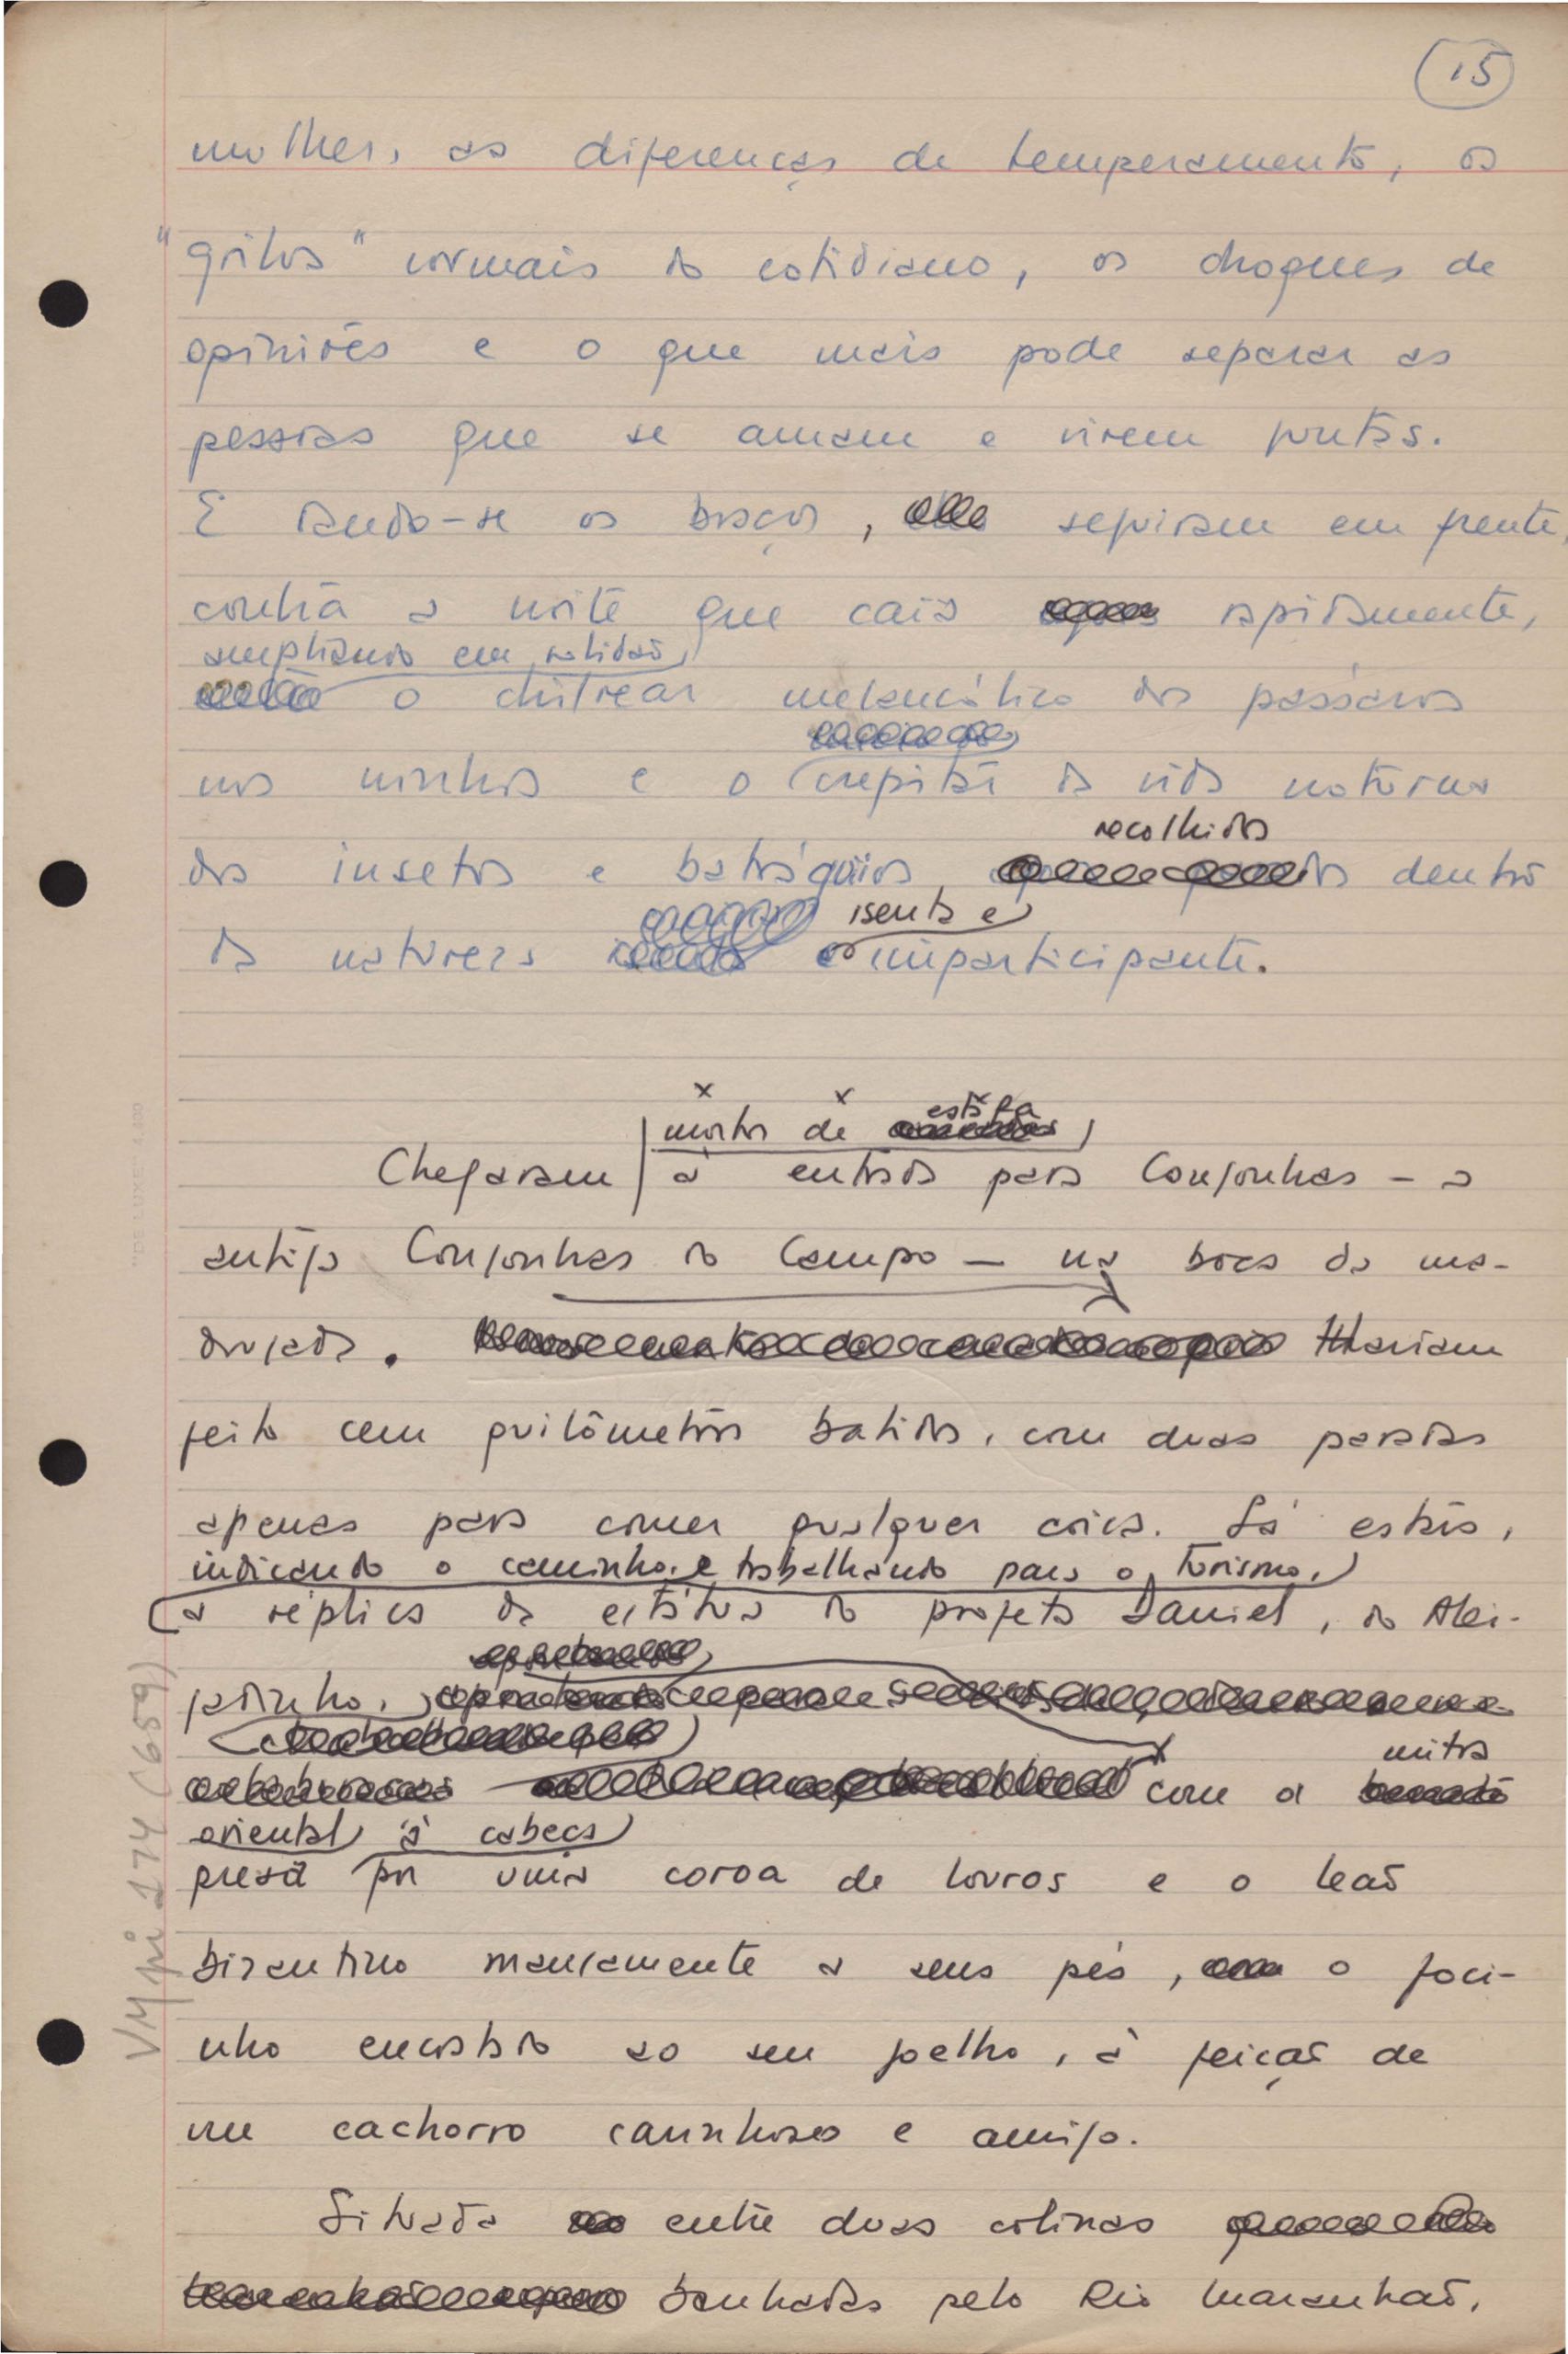 15
mulher, as diferenças de temperamento, os
"grilos" normais do cotidiano, os choques de
opiniões e o que mais pode separar as
pessoas que se amam e vivem juntas.
E dando-se os braços, seguiram em frente,
contra a noite que caía rapidamente,
ampliando em solidão
o chilrear melancólico dos pássaros
nos ninhos e o crepitar da vida noturna
recolhidos
dos insetos e batráquios, dentro
isenta e
da natureza imparticipante.
mortos de estafa
Chegaram à entrada para Congonhas - a
antiga Congonhas do Campo - na boca da ma-
drugada. Haviam
feito cem quilômetros batidos, com duas paradas
apenas para comer qualquer coisa. Lá estava,
indicando o caminho e trabalhando para o turismo,
a réplica da estátua do profeta Daniel, do Alei-
jadinho,
mitra
com a
oriental à cabeça
presa por uma coroa de louros e o leão
bizantino mansamente a seus pés, o foci-
nho encostado ao seu joelho, à feição de
um cachorro carinhoso e amigo.
Situada entre duas colinas
banhadas pelo Rio Maranhão,
VMpi 174 (659)